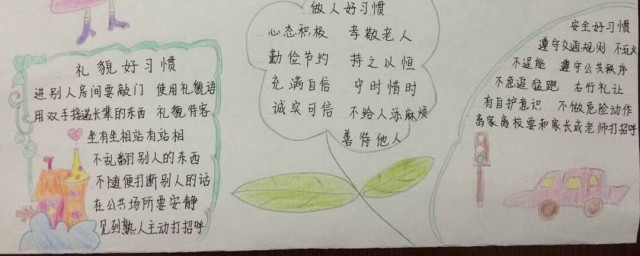 礼貌好习惯
进别人房间要敲门 使用礼貌语
用双手接递长辈的东西 礼貌待客
坐有坐相站有站相
不乱翻别人的东西
不随便打断别人的话
在公共场所要安静
见到熟人主动打招呼
做人好习惯
心态积极 孝敬老人
勤俭节约 持之以恒
充满自信 守时惜时
诚实可信 不给人添麻烦
善待他人
安全好习惯
遵守交通规则
不逞能 遵守公共秩序
不急追猛跑 右行礼让
有自护意识 不做危险动作
离家离校要和家长或老师打招呼